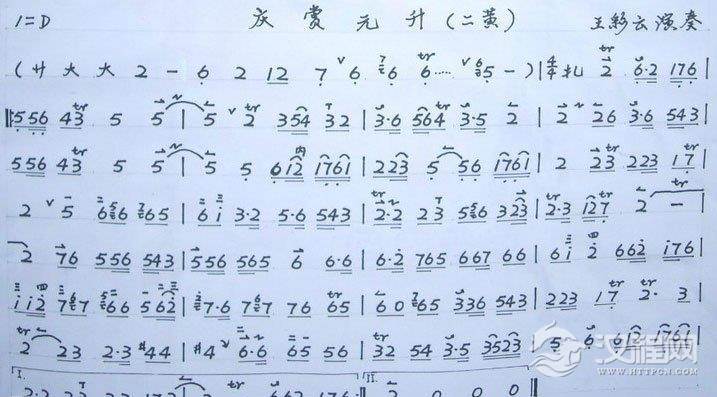 1=D 庆赏元升(二黄) 王彩云演奏
(廿大大 2 - 6 2 12 7 ᵛ6 6 6 ..... ᵛ6 5 -)| 4/4 扎 2 6·2 176 |
‖: 556 43 5 5 | 5 ᵛ2 354 32 | 3·6 564 3·5 2 | 2 26 3·6 543 |
556 43 5 5 | 5 5 612 1761 | 223 5 56 1761 | 2 23 223 17 |
2 ᵛ5 6 6 765 | 6 1 3·2 5·6 543 | 2·2 23 556 323 | 2·3 127 2 - |
2 76 556 543 | 556 565 6 6·6 | 6·2 765 667 66 | 61 2 662 176 |
112 767 66 562 | 7·6 7 7 76 65 | 60 65 336 543 | 223 17 2· 3 |
2 23 2·3 #44 | #4 6·6 65 56 | 32 54 3·5 3523 | 5 6 612 1761 |
汉程网
WWW.HTTPCN.COM